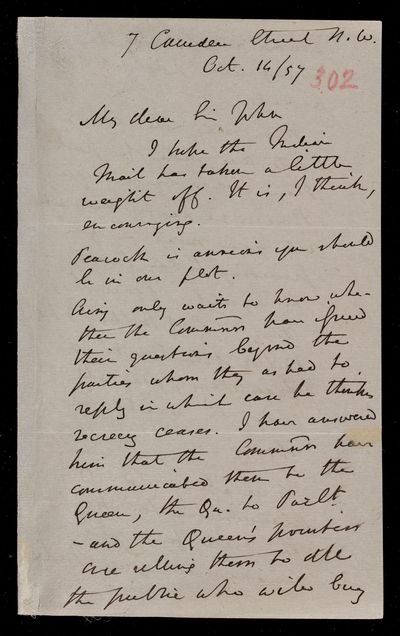 7 Camden Street N.W.
Oct. 14/57
302
My dear Sir John
I hope the Indian
Mail has taken a little
weight off. It is, I think,
encouraging.
Peacock is anxious you should
be in our plot.
Airy only waits to know whe-
ther the Commissrs have
their questions beyond the
parties whom they asked to
reply in which case he thinks
secrecy ceases. I have answered
him that the Commissrs have
communicated them to the
Queen, the Qu. to Parlt
- and the Queen's printers
are selling them to all
the public who will buy